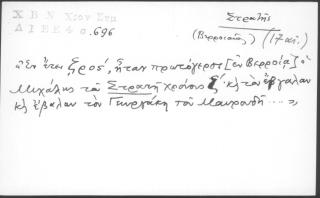 Χ Β Ν Χιον Στμ
Δ Ι Ε Ε 4 σ. 696
Στρατῆς
(Βερροιαῖος) (17 αἰ.)
"ἔτει ζρσδ´, ἦταν πρωτόγερος [ἐν Βερροίᾳ] ὁ
Μιχάλης τοῦ Στρατῆ χρόνους ζ´ κὴ τὸν ἔβγαλαν
κὴ ἔβαλαν τὸν Γιωργάκη τοῦ Μαυρουδῆ ...."